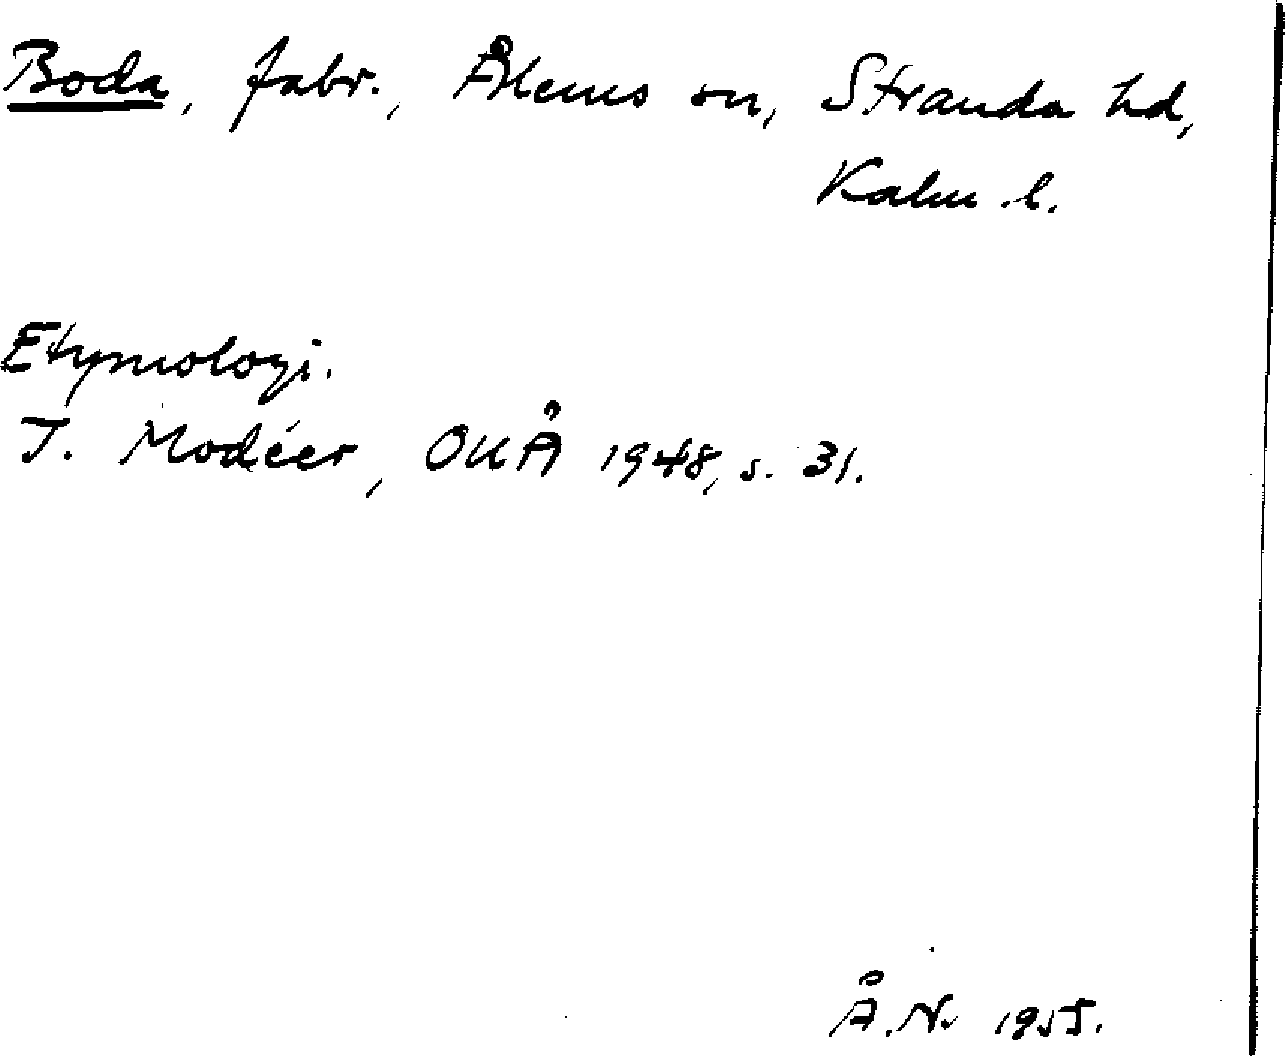 Boda, fabr., Ålems sn, Stranda hd,
Kalm l.
Etymologi.
I. Modéer, OUÅ 1948, s. 31.
Å.N. 1955.